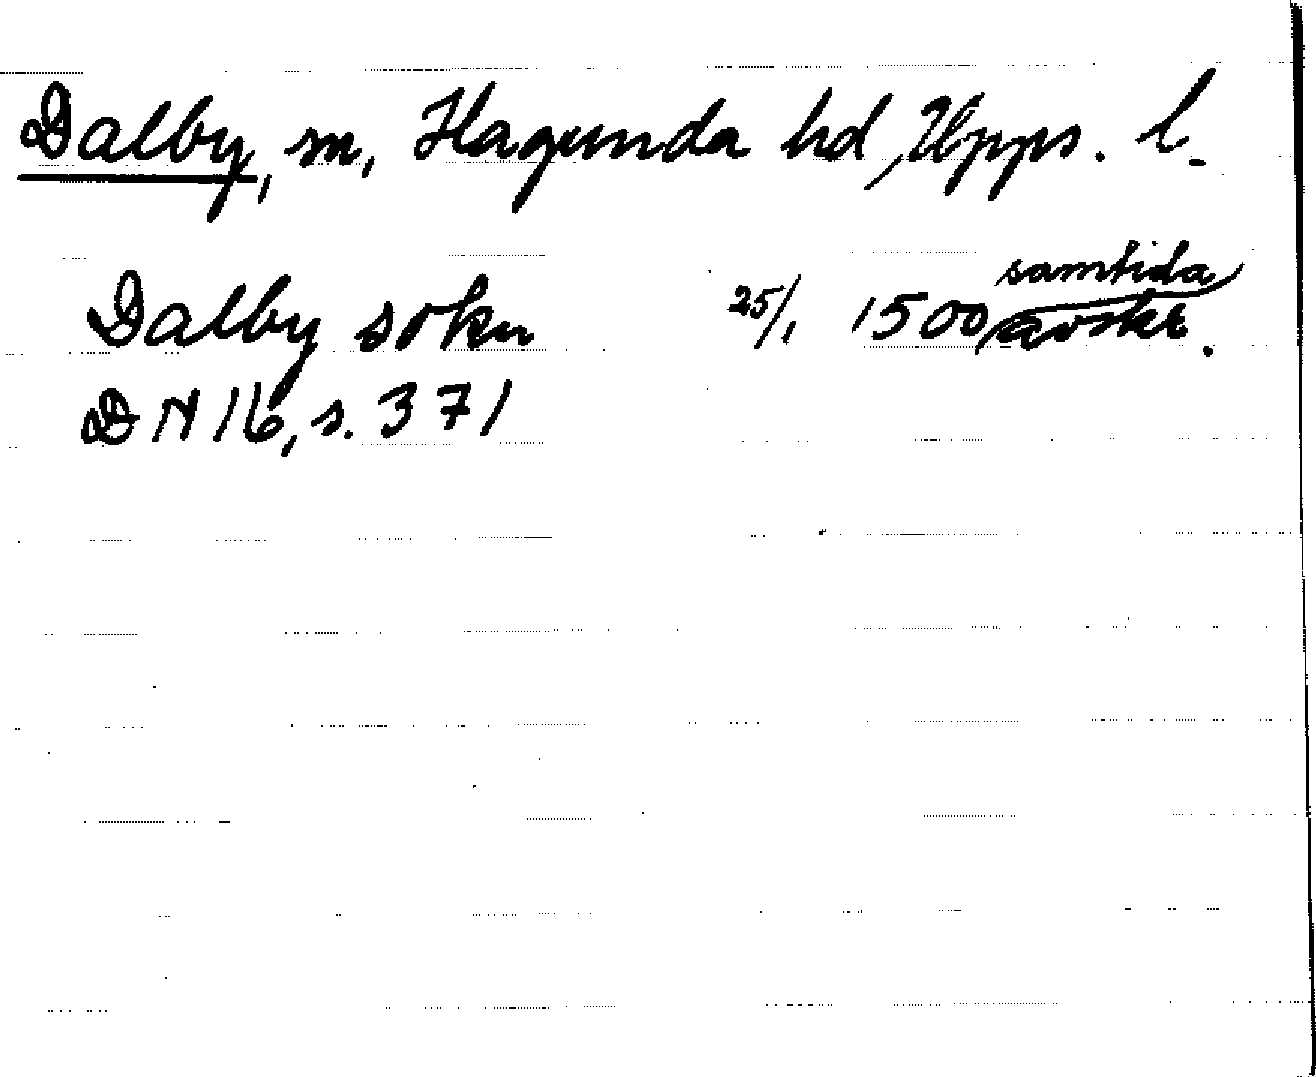 Dalby, sn, Hagunda hd, Upps. l.
Dalby sokn 25/1 1500 samtida avskr.
DN 16, s. 371